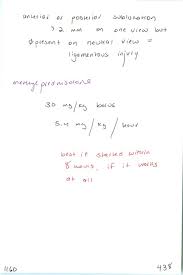 anterior or posterior subluxation
> 2 mm on one view but
present on neutral view =
ligamentous injury
methylprednisolone
30 mg/kg bolus
5.4 mg/kg/hour
best if started within
8 hours, if it works
at all
1160
438